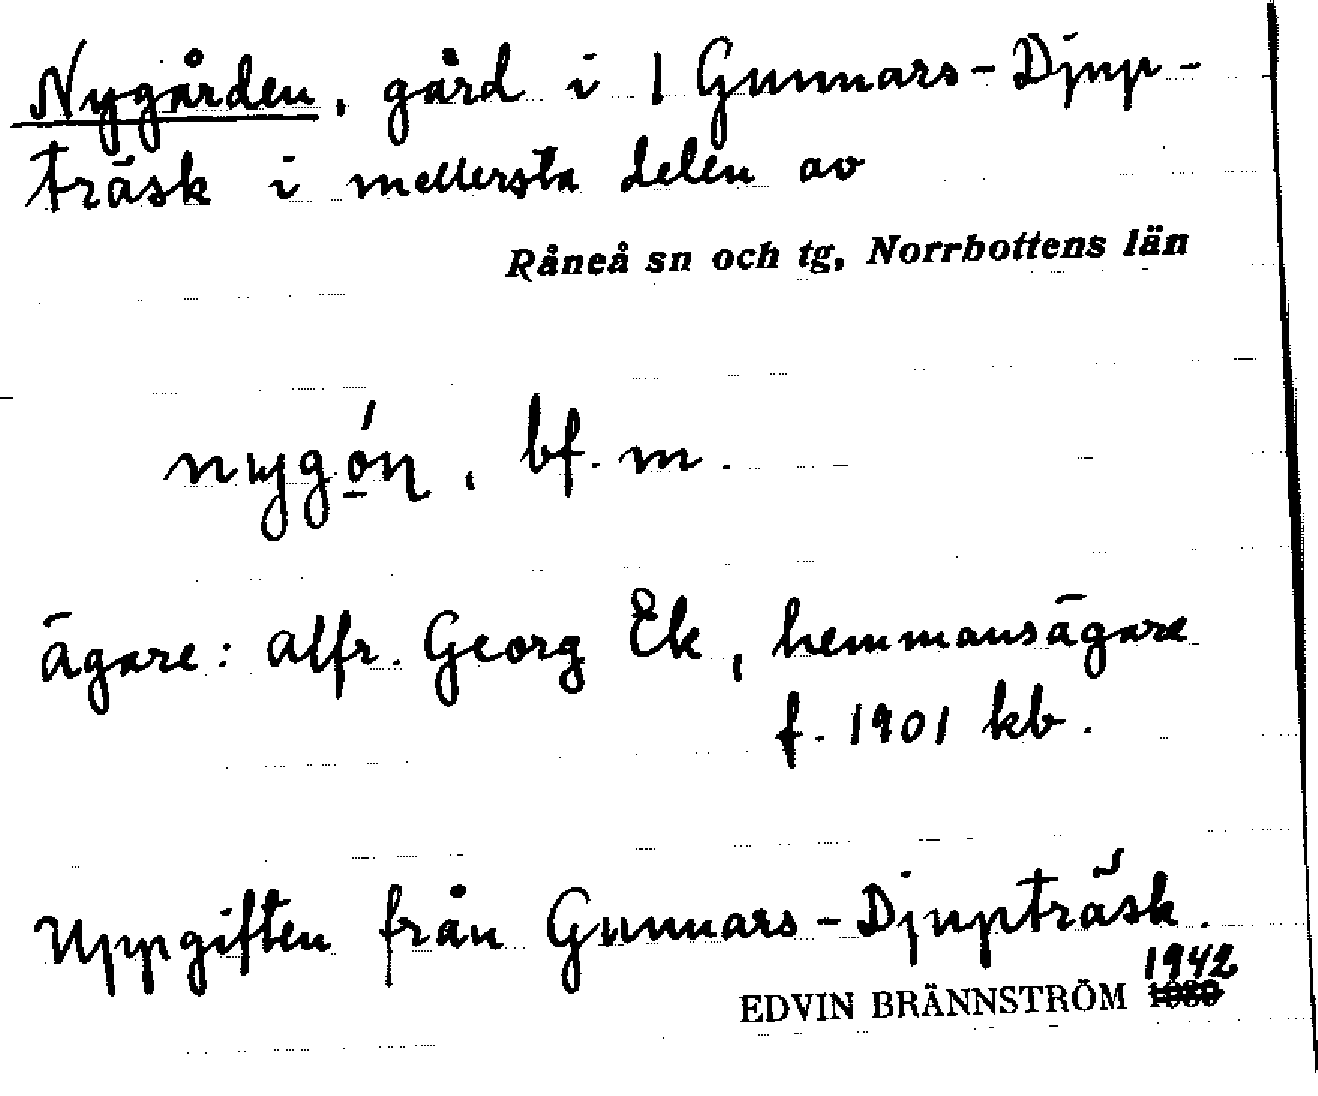 Nygården, gård i 1 Gunnars-Djup-
träsk i mellersta delen av
Råneå sn och tg, Norrbottens län
nygó̠n, bf. m.
ägare: Alfr. Georg Ek, hemmansägare
f. 1901 kb.
Uppgiften från Gunnars-Djupträsk.
1942
EDVIN BRÄNNSTRÖM